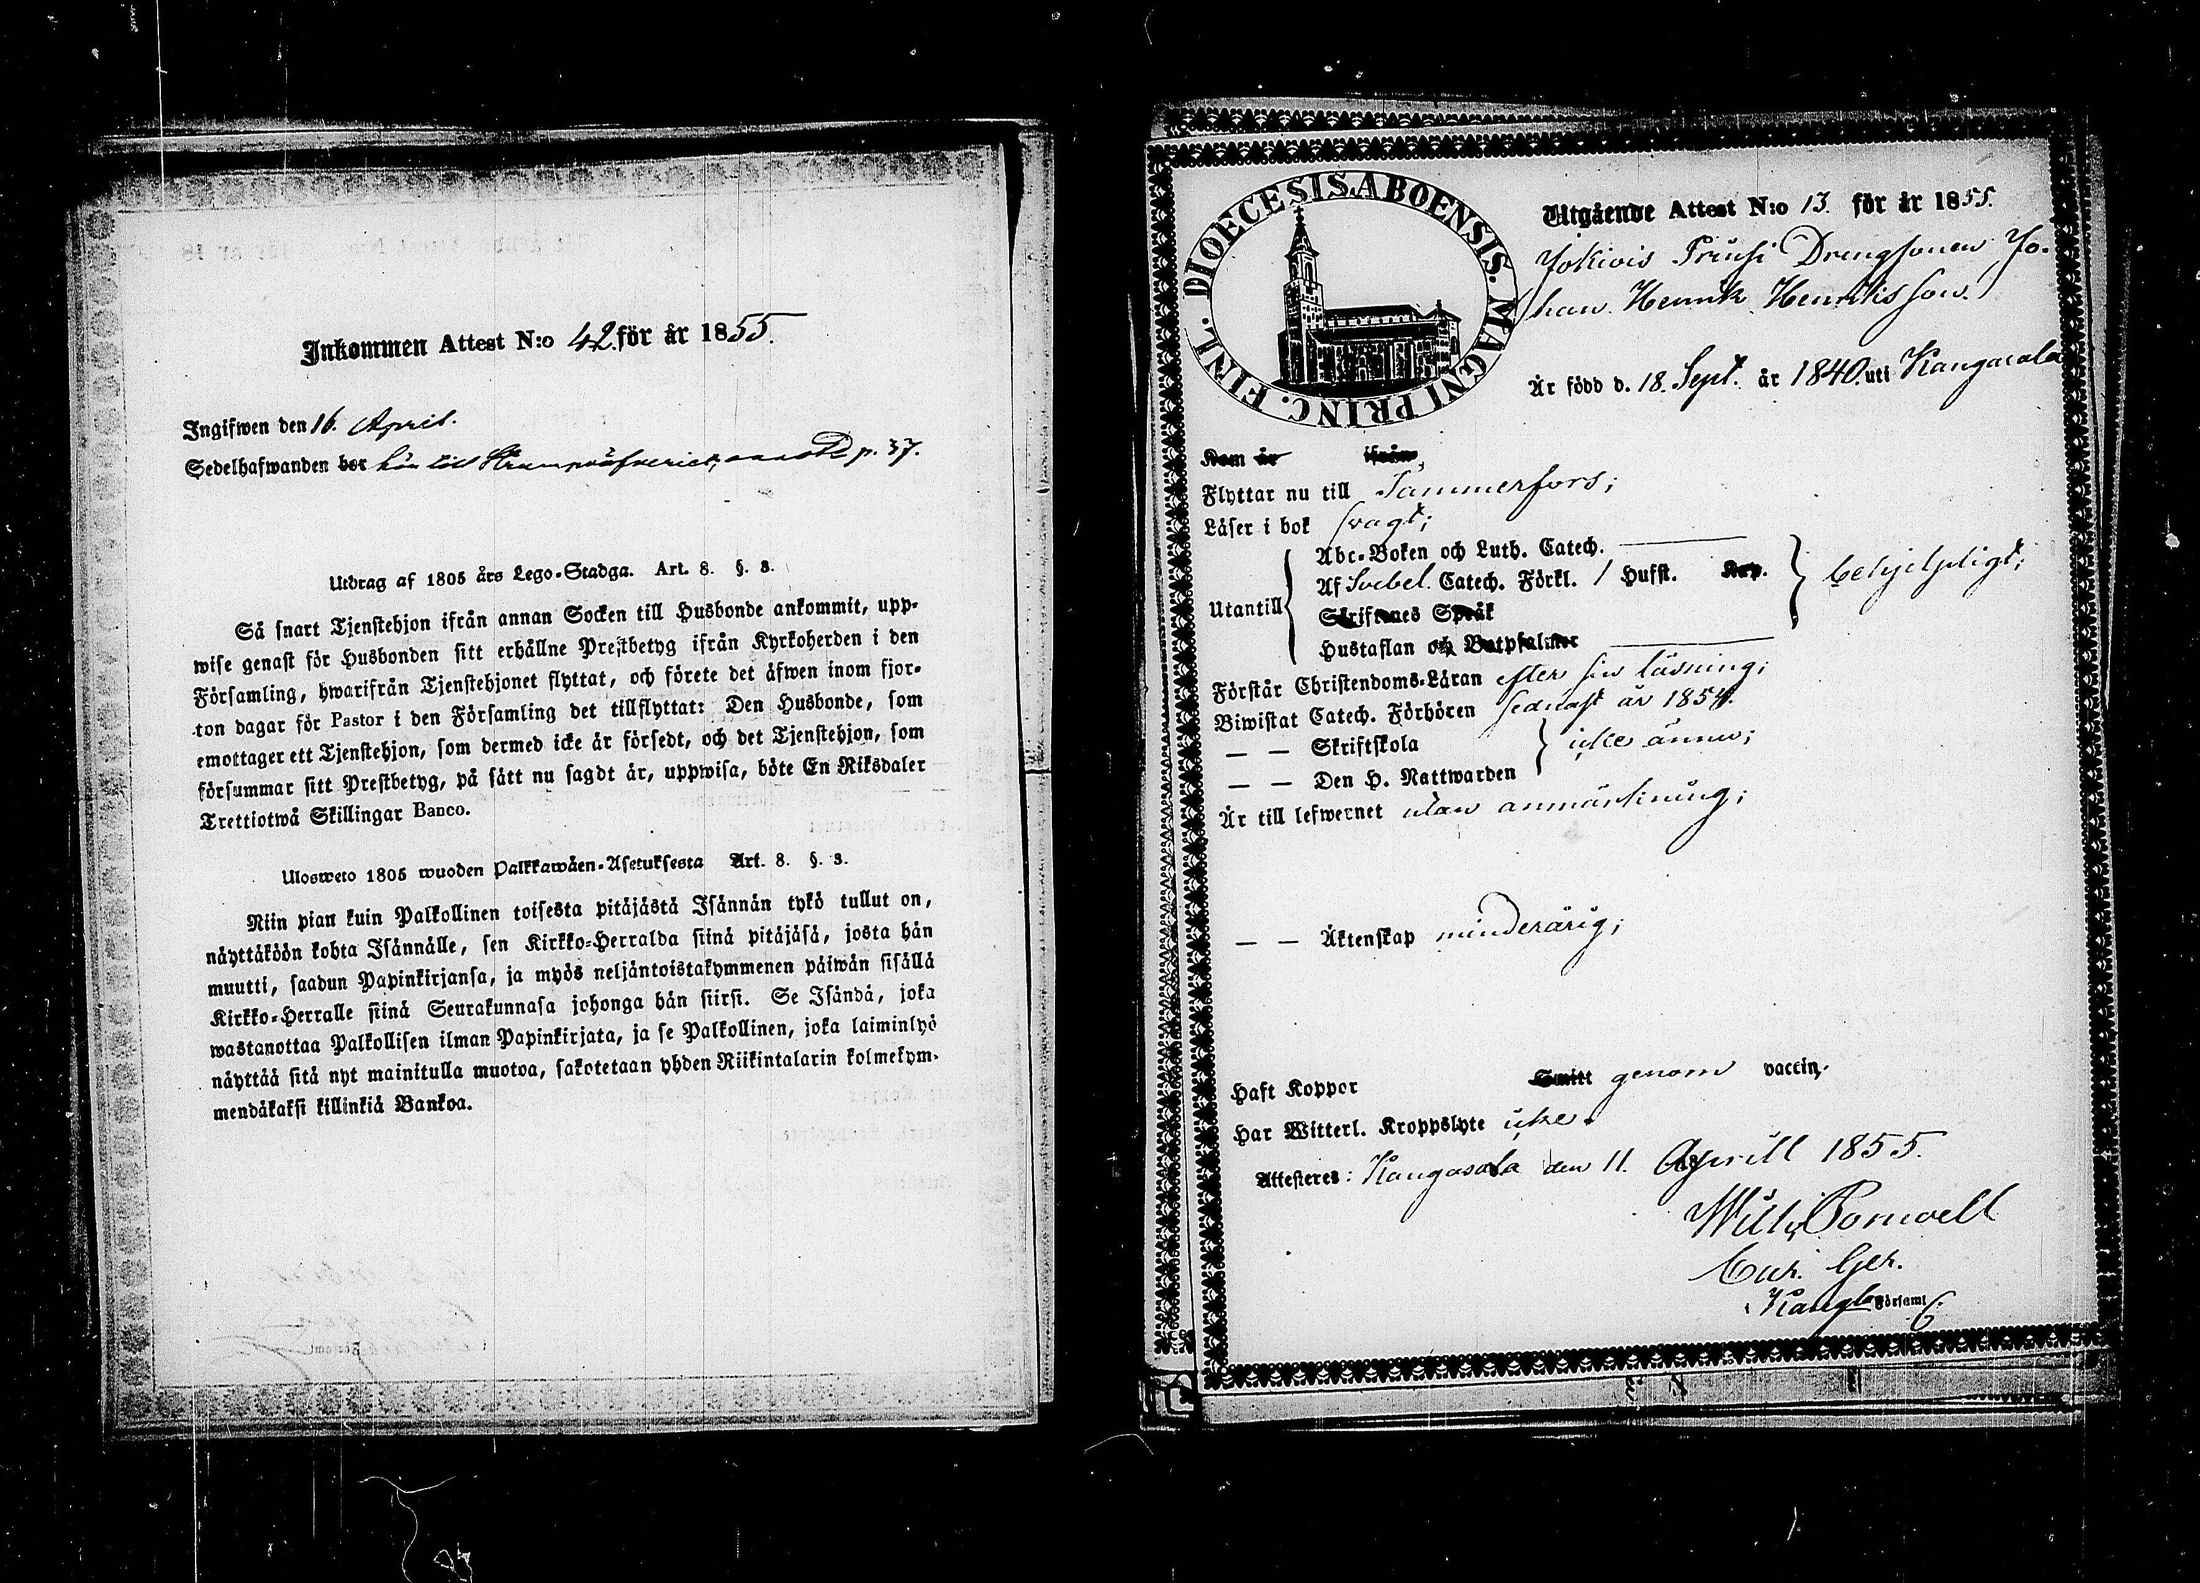 Inkommen Attest N:o 42. för år 1855.
Ingifwen den 16. April.
Sedelhafwanden bor hör till p. 37.
Utdrag af 1805 års Lego-Stadga. Art. 8. §. 3.
Så snart Tjenstehjon ifrån annan Socken till Husbonde ankommit, upp-
wise genast för Husbonden sitt erhållne Prestbetyg ifrån Kyrkoherden i den
Församling, hwarifrån Tjenstehjonet flyttat, och förete det äfwen inom fjor-
ton dagar för Pastor i den Församling det tillflyttat: Den Husbonde, som
emottager ett Tjenstehjon, som dermed icke är försedt, och det Tjenstehjon, som
försummar sitt Prestbetyg, på sätt nu sagdt är, uppwisa, böte En Riksdaler
Trettiotwå Skillingar Banco.
Ulosweto 1805 wuoden Palkkawäen-Asetuksesta Art. 8. §. 3.
Niin pian kuin Palkollinen toisesta pitäjästä Isännän tykö tullut on,
näyttäköön kohta Isännälle, sen Kirkko-Herralda siinä pitäjäsä, josta hän
muutti, saadun Papinkirjansa, ja myös neljäntoistakymmenen päiwän sisällä
Kirkko-Herralle siinä Seurakunnasa johonga hän siirsi. Se Isändä, joka
wastanottaa Palkollisen ilman Papinkirjata, ja se Palkollinen, joka laiminlyö
näyttää sitä nyt mainitulla muotoa, sakotetaan yhden Riikintalarin kolmekym-
mendäkaksi killinkiä Bankoa.
DIOECESIS ABOENSIS. MAGNI PRINC. FINL.
Utgående Attest N:o 13. för år 1855.
Jokiois Prusi Drengsonen Jo-
han Henrik Henriksson.
Är född d. 18. Sept. år 1840. uti Kangasala
Kom år ifrån
Flyttar nu till Tammerfors;
Läser i bok svagt;
Utantill
Abc-Boken och Luth. Catech.
Af Svebel. Catech. Förkl. 1 Hufst. Kap.
Skriftenes Språk
Hustaflan och Botpsalmer
behjelpligt;
Förstår Christendoms-Läran efter sin läsning;
Biwistat Catech. Förhören sednast år 1854.
— — Skriftskola
— — Den H. Nattwarden
icke ännu;
Är till lefwernet utan anmärkning;
— — Äktenskap minderårig;
Haft Koppor Smitt genom vaccin.
Har Witterl. Kroppslyte icke.
Attesteres: Kangasala den 11. Aprill 1855.
Cur. Ger.
Kangla Församl